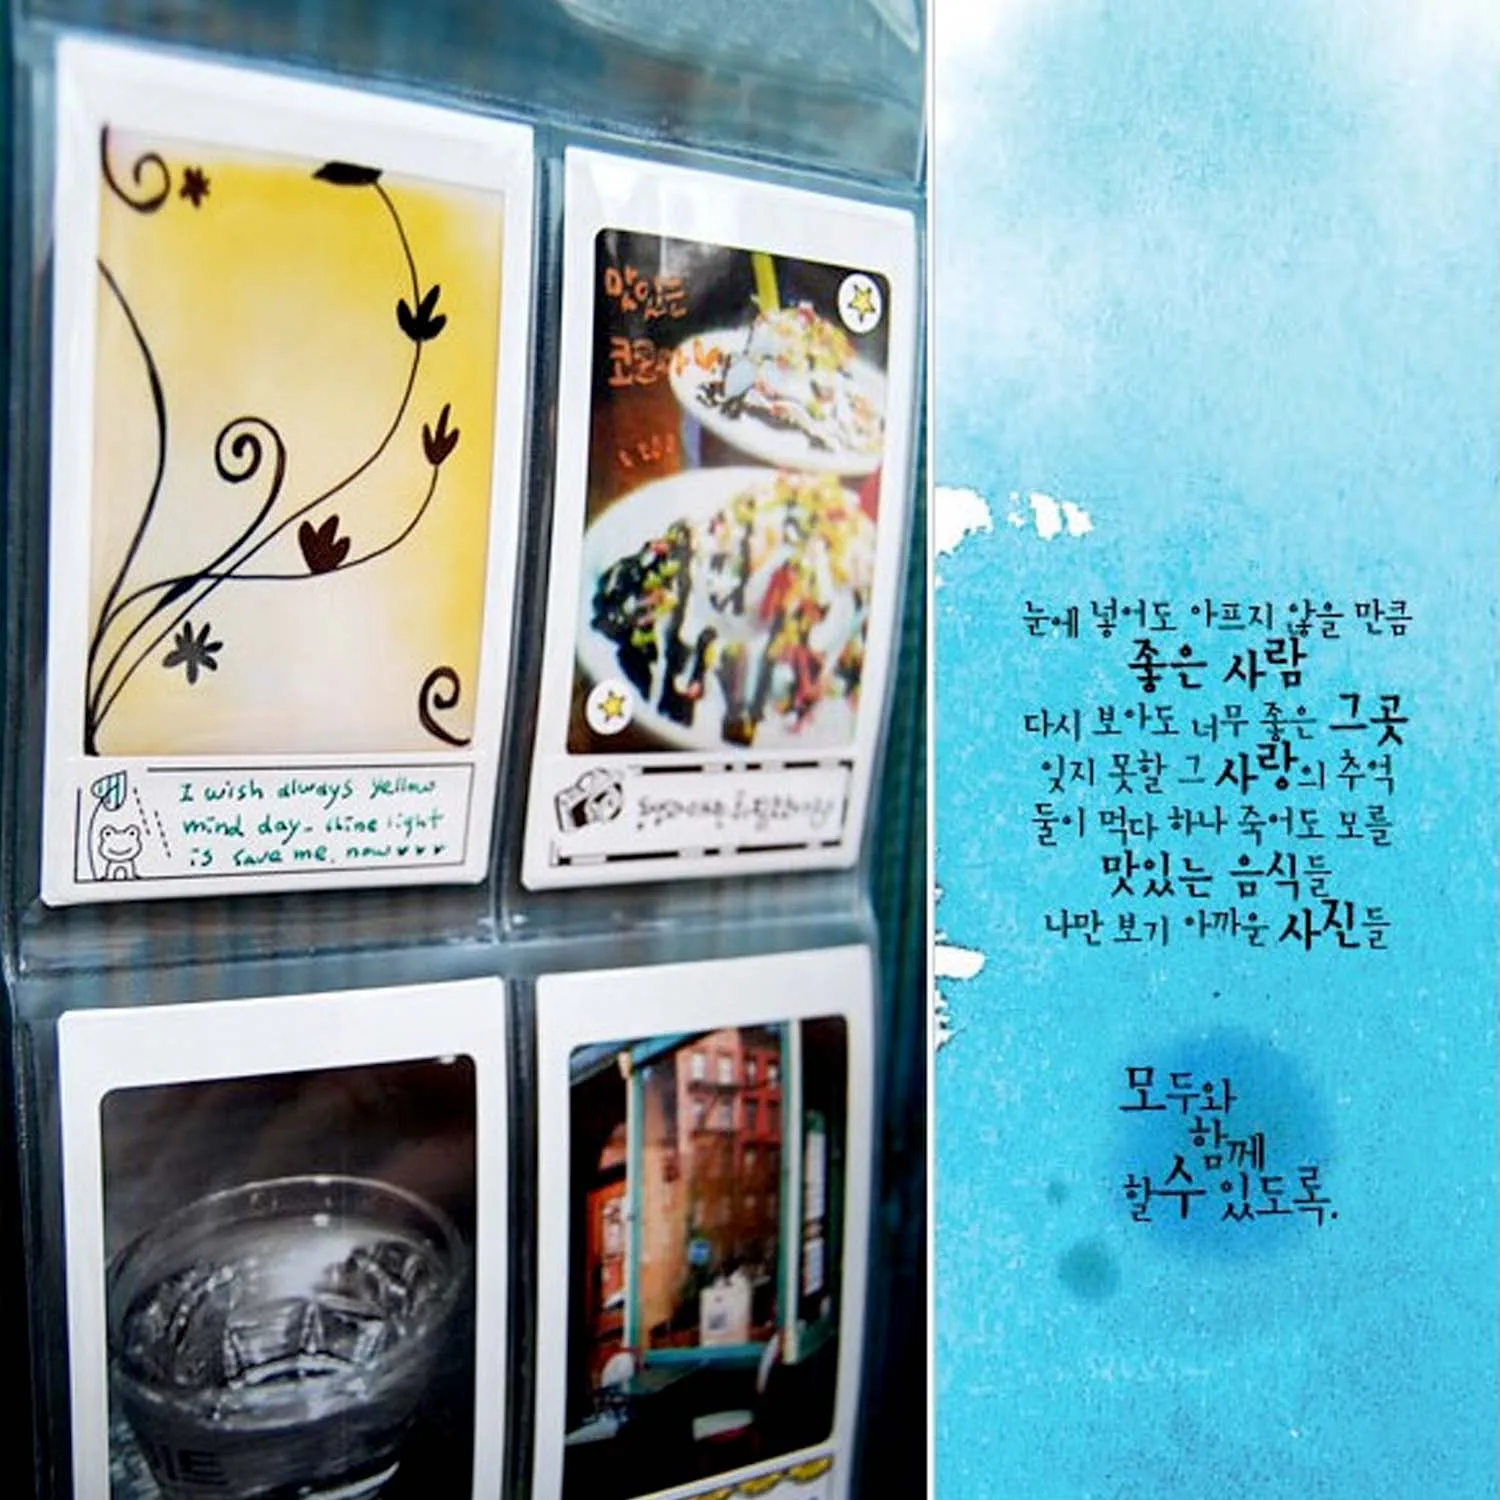 I wish always yellow
mind day. shine light
is save me. now ♥♥♥
맛있는
눈에 넣어도 아프지 않을 만큼
좋은 사람
다시 보아도 너무 좋은 그곳
잊지 못할 그 사랑의 추억
둘이 먹다 하나 죽어도 모를
맛있는 음식들
나만 보기 아까운 사진들
모두와
함께
할수 있도록.